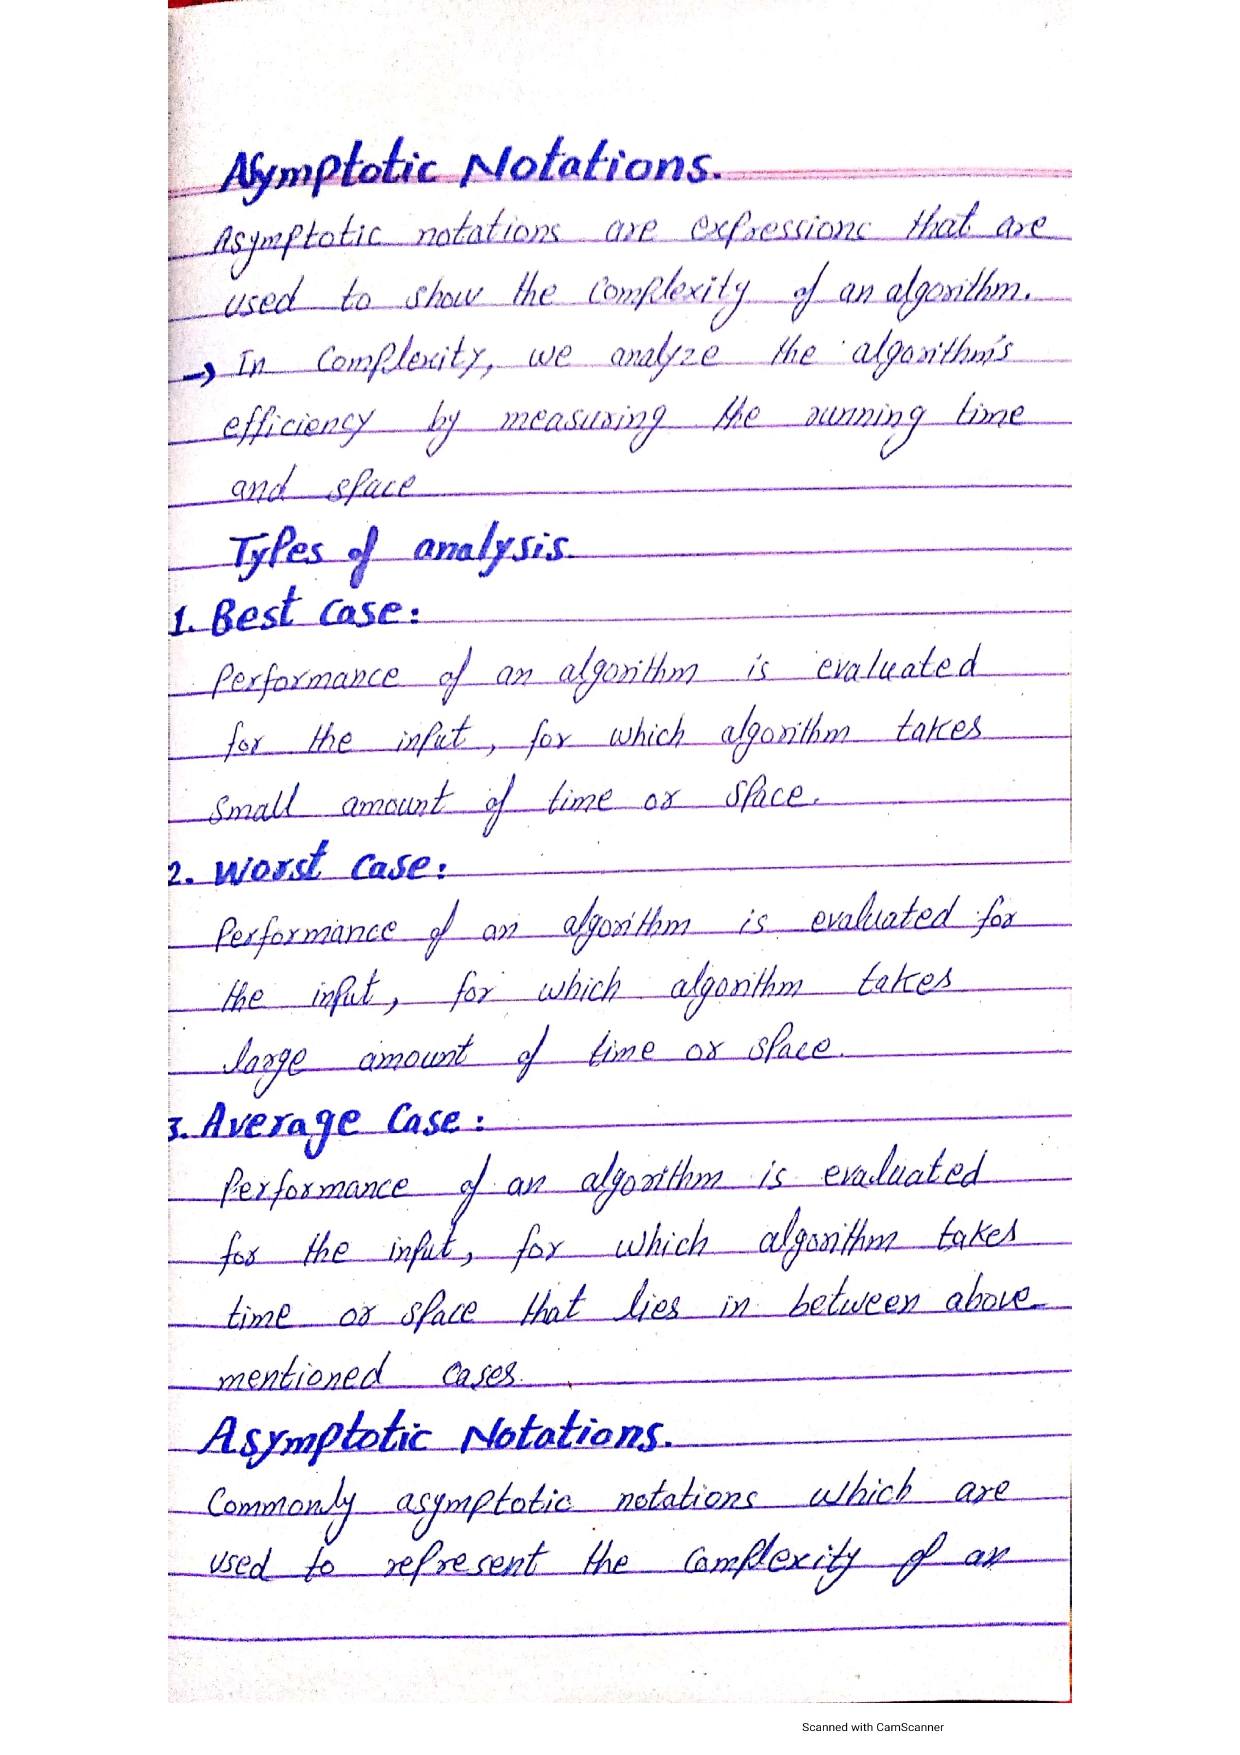 Asymptotic Notations.
Asymptotic notations are expressions that are
used to show the complexity of an algorithm.
→ In complexity, we analyze the algorithm's
efficiency by measuring the running time
and space
Types of analysis.
1. Best case:
Performance of an algorithm is evaluated
for the input, for which algorithm takes
small amount of time or space.
2. Worst case:
Performance of an algorithm is evaluated for
the input, for which algorithm takes
large amount of time or space.
3. Average Case:
Performance of an algorithm is evaluated
for the input, for which algorithm takes
time or space that lies in between above
mentioned cases.
Asymptotic Notations.
Commonly asymptotic notations which are
used to represent the complexity of an
Scanned with CamScanner